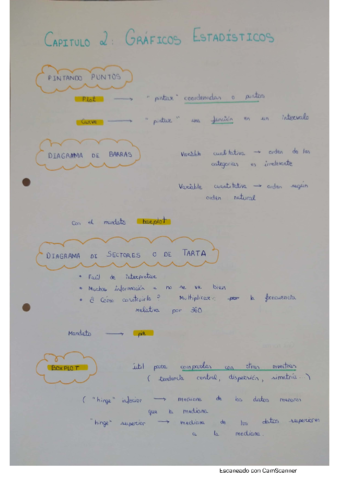 CAPITULO 2: GRÁFICOS ESTADÍSTICOS
PINTANDO PUNTOS
Plot → "pintar" coordenadas o puntos
Curve → "pintar" una función en un intervalo
DIAGRAMA DE BARRAS
Variable cualitativa → orden de las
categorías es indiferente
Variable cuantitativa → orden según
orden natural
Con el mandato barplot
DIAGRAMA DE SECTORES O DE TARTA
• Fácil de interpretar
• Mucha información → no se ve bien
• ¿Cómo construirlo? Multiplicar por la frecuencia
relativa por 360
Mandato → pie
BOXPLOT
Útil para compararlas con otras muestras
(tendencia central, dispersión, simetría..)
( "hinge" inferior → mediana de los datos menores
que la mediana
"hinge" superior → mediana de los datos superiores
a la mediana
Escaneado con CamScanner